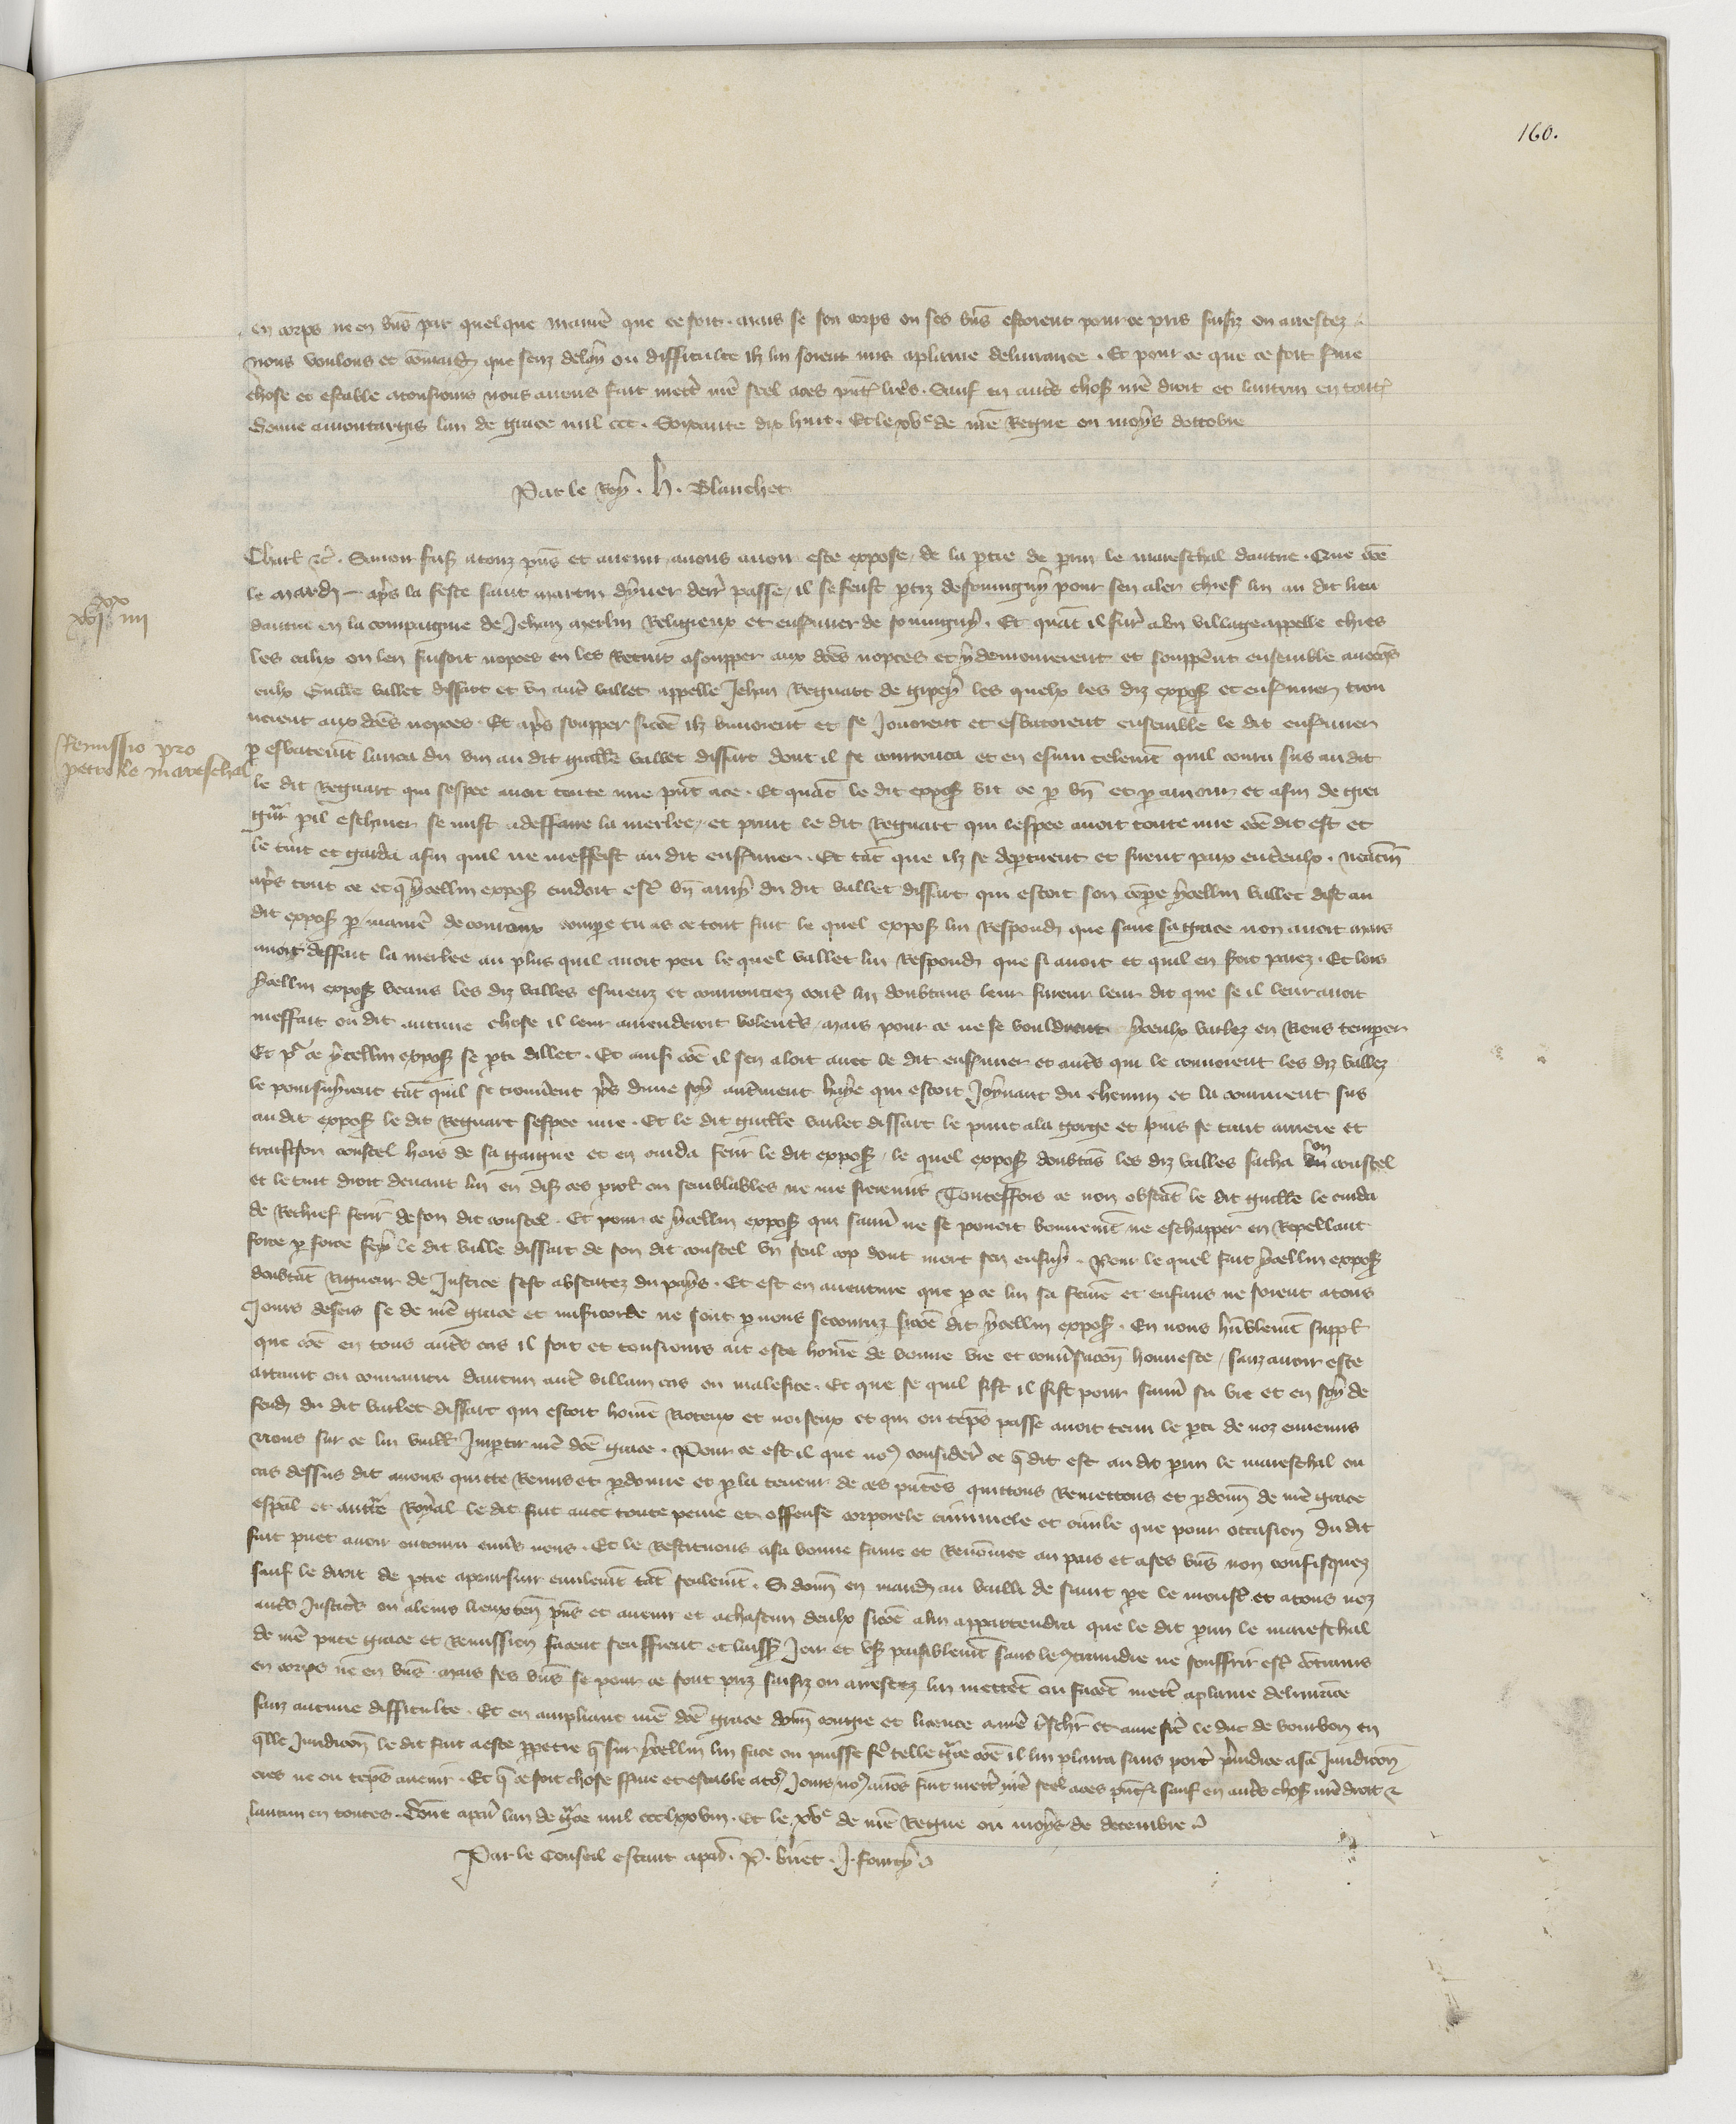 160.
en corps ne en biens par quelque maniere que ce soit. mais se son corps ou ses biens estoient pour ce pris saisiz ou arrestez
nous voulons et comandons que senz delay ou difficulte ilz lui soient mis a plaine delivrance. Et pour ce que ce soit ferme
chose et estable a tousjours nous avons fait mettre nostre seel a ces presentes lettres. Sauf en autres choses nostre droit et lautrui en toutes
Donne a Montargis lan de grace mil ccc. Soixante dix huit. Et le xve de nostre Regne ou moys doctobre
Par le Roy. H. Blanchet
Charles etc. Savoir faisons a touz presens et avenir avons avoir este expose, de la partie de perrin le mareschal dautrie. Que comme
le mardi apres la feste saint martin dyver derr passe, il se feust partiz de souvigny pour sen aler chief lui au dit lieu
dautrie en la compaignie de Jehan merlin Religieux et enfermer de souvigny. Et quant il furent a un village appelle chies
les calix on len faisoit nopces en les Retint a soupper aux dictes nopces et y demourerent et soupperent ensemble avecques
eulx Guillaume vallet dissart et un autre vallet appelle Jehan Regnart de gipcy les quelx les diz exposant et enfermer trou
verent aux dictes nopces. Et apres soupper sicomme ilz buvoient et se Jouoient et esbatoient ensemble le dit enfermer
xvi xx iiii
Remissio pro
petro le mareschal
par esbatement lanca du vin au dit guillaume vallet dissart dont il se courrouca et en esmu telement quil couru sus au dit
le dit Regnart qui sespee avoit toute nue present a ce. Et quant le dit exposant vit ce par bien et par amour et afin de grei
gneur peril eschiver se mist a deffaire la merlee, et print le dit Regnart qui lespee avoit toute nue comme dit est et
le tint et garda afin quil ne meffeist au dit enfermer. Et tant que ilz se departirent et firent paix entre eulx. neantmoins
apres tout ce et que ycellui exposant cuidoit estre bien amy du dit vallet dissart qui estoit son compere ycellui vallet dist au
dit exposant par maniere de courroux compere tu as ce tout fait le quel exposant lui Respondi que sauve sa grace non avoit mais
avoit deffait la merlee au plus quil avoit peu le quel vallet lui Respondi que si avoit et quil en seroit paiez. Et lors
ycellui exposant veans les diz valles esmeuz et courrouciez contre lui doubtans leur fureur leur dit que se il leur avoit
meffait ou dit aucune chose il leur amenderoit volentiers, mais pour ce ne se vouldrent yceulx varlez en Riens temperer
Et pour ce ycellui exposant se parti dillec. Et ainsi comme il sen aloit avec le dit enfermer et autres qui le convoient les diz vallez
le poursuyrent tant quil se trouverent pres dune soy autrement haye qui estoit Joynant du chemin et la coururent sus
au dit exposant le dit Regnart sespee nue. Et le dit guillaume varlet dissart le print a la gorge et puis se tira arriere et
traist son coustel hors de sa gaigne et en cuida ferir le dit exposant, le quel exposant doubtans les diz valles sacha un son coustel
et le tint droit devant lui en disant ces paroles ou semblables ne me fierremis Toutesffois ce non obstant le dit guillaume le cuida
de Rechief ferir de son dit coustel. Et pour ce ycellui exposant qui sauver ne se povoit bonnement ne eschapper en Repellant
force par force fery le dit valle dissart de son dit coustel un seul cop dont mort sen ensuy. Pour le quel fait ycellui exposant
doubtant Rigueur de Justice sest absentez du pays. Et est en aventure que par ce lui sa femme et enfans ne soient a tous
Jours desers se de nostre grace et misericorde ne sont par nous secouruz sicomme dit ycellui exposant. En nous humblement suppliant
que comme en tous autres cas il soit et tousjours ait este homme de bonne vie et conversacion honneste, sanz avoir este
attaint ou convaincu daucun autre villain cas ou malefice. Et que se quil fist il fist pour sauver sa vie et en soy de
fendant du dit varlet dissart qui estoit homme Rioteux et noiseux et qui ou temps passe avoit tenu le parti de noz ennemis
vions sur ce lui vueillons Impartir nostre dicte grace. Pour ce est il que nous considere ce que dit est au dit perrin le mareschal ou
cas dessus dit avons quitte Remis et pardonne et par la teneur de ces presentes quittons Remettons et pardonnons de nostre grace
especial et auctorite Royal le dit fait avec toute peine et offense corporele criminele et civile que pour occasion du dit
fait puet avoir encouru envers nous. Et le Restituons a sa bonne fame et Renommee au pais et a ses biens non confisquez
sauf le droit de partie a poursuir civilement tant seulement. Si donnons en mandement au bailli de saint pere le moustier et a tous noz
autres Justiciers ou a leurs lieuxtenans presens et avenir et a chascun deulx sicomme a lui appartendra que le dit perrin le mareschal
de nostre presente grace et Remission facent seuffrent et laissent Joir et user paisiblement sans le contraindre ne souffrir estre contrains
en corps ne en biens. mais ses biens se pour ce sont priz saisiz ou arrestez lui mettent ou facent mettre a plaine delivrance
sanz aucune difficulte. Et en ampliant nostre dicte grace donnons congie et licence a nostre treschier et ame frere le duc de bourbon en
quelle Juridicion le dit fait a este perpetre que sur ycellui lui face ou puisse fere telle grace comme il lui plaira sans porter prejudice a sa Juridicion
ores ne ou temps avenir. Et que ce soit chose ferme et estable a tous Jours, nous avons fait mettre nostre seel a ces presentes sauf en autres choses nostre droit et
lautrui en toutes. Donne a paris lan de grace mil ccclxxviii. Et le xve de nostre Regne ou moys de decembre
Par le Conseil estant a paris. P. briet. J. fourcy